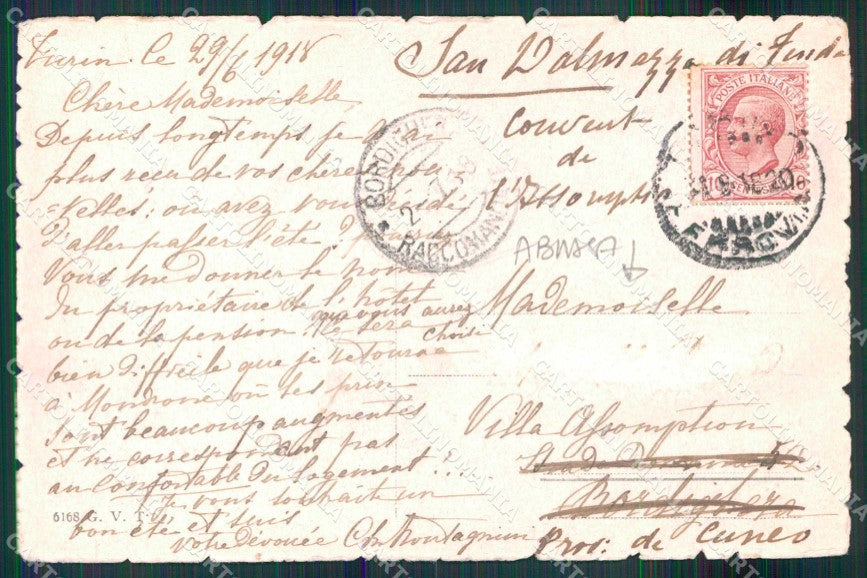 Turin le 29/6 1918
Chère Mademoiselle,
Depuis longtemps je n'ai
plus reçu de vos chères nou
velles: où avez vous décidé
d'aller passer l'été?
Vous me donner le nom
du propriétaire de l'hôtel
ou de la pension que vous aurez
choisi
le sera
bien difficile que je retourne
à Mondrone où les prix
sont beaucoup augmentés
et ne correspondent pas
au confortable du logement...
Je vous souhaite un
bon été et suis
votre dévouée Ch.
6168 G. V. T.
San Dalmazzo di Tenda
Couvent
de
l'Assompt
ABMAS7
Mademoiselle
Villa Assomption
Bordighera
Prov: de Cuneo
POSTE ITALIANE
BORDIGHERA
RACCONI
FERROVIA
CARTOLINOMANIA